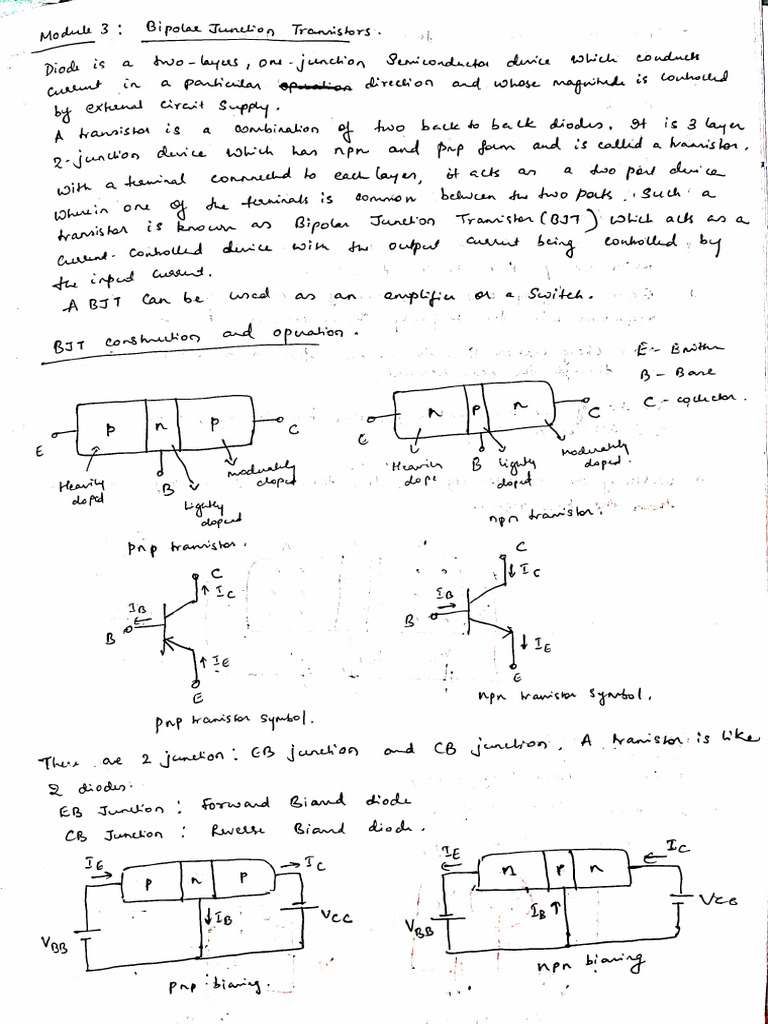 Module 3 : Bipolar Junction Transistors.
Diode is a two-layer, one-junction Semiconductor device which conducts
current in a particular operation direction and whose magnitude is controlled
by external circuit supply.
A transistor is a combination of two back to back diodes. It is 3 layer
2-junction device which has npn and pnp form and is called a transistor.
With a terminal connected to each layer, it acts as a two port device
wherein one of the terminals is common between the two ports. Such a
transistor is known as Bipolar Junction Transistor (BJT) which acts as a
current-controlled device with the output current being controlled by
the input current.
A BJT can be used as an amplifier or a switch.
BJT construction and operation.
E - Emitter
B - Base
C - collector.
p n p
E C
Heavily doped
B
Lightly doped
moderately doped
pnp transistor.
n p n
E C
Heavily dope
B
lightly doped
moderately doped.
npn transistor.
C
IC
IB
B
IE
E
pnp transistor symbol.
C
IC
IB
B
IE
E
npn transistor symbol.
There are 2 junction : EB junction and CB junction. A transistor is like
2 diodes.
EB Junction : Forward Biased diode
CB Junction : Reverse Biased diode.
IE
p n p
IC
IB
VBB
VCC
pnp biasing.
IE
n p n
IC
IB
VBB
VCC
npn biasing